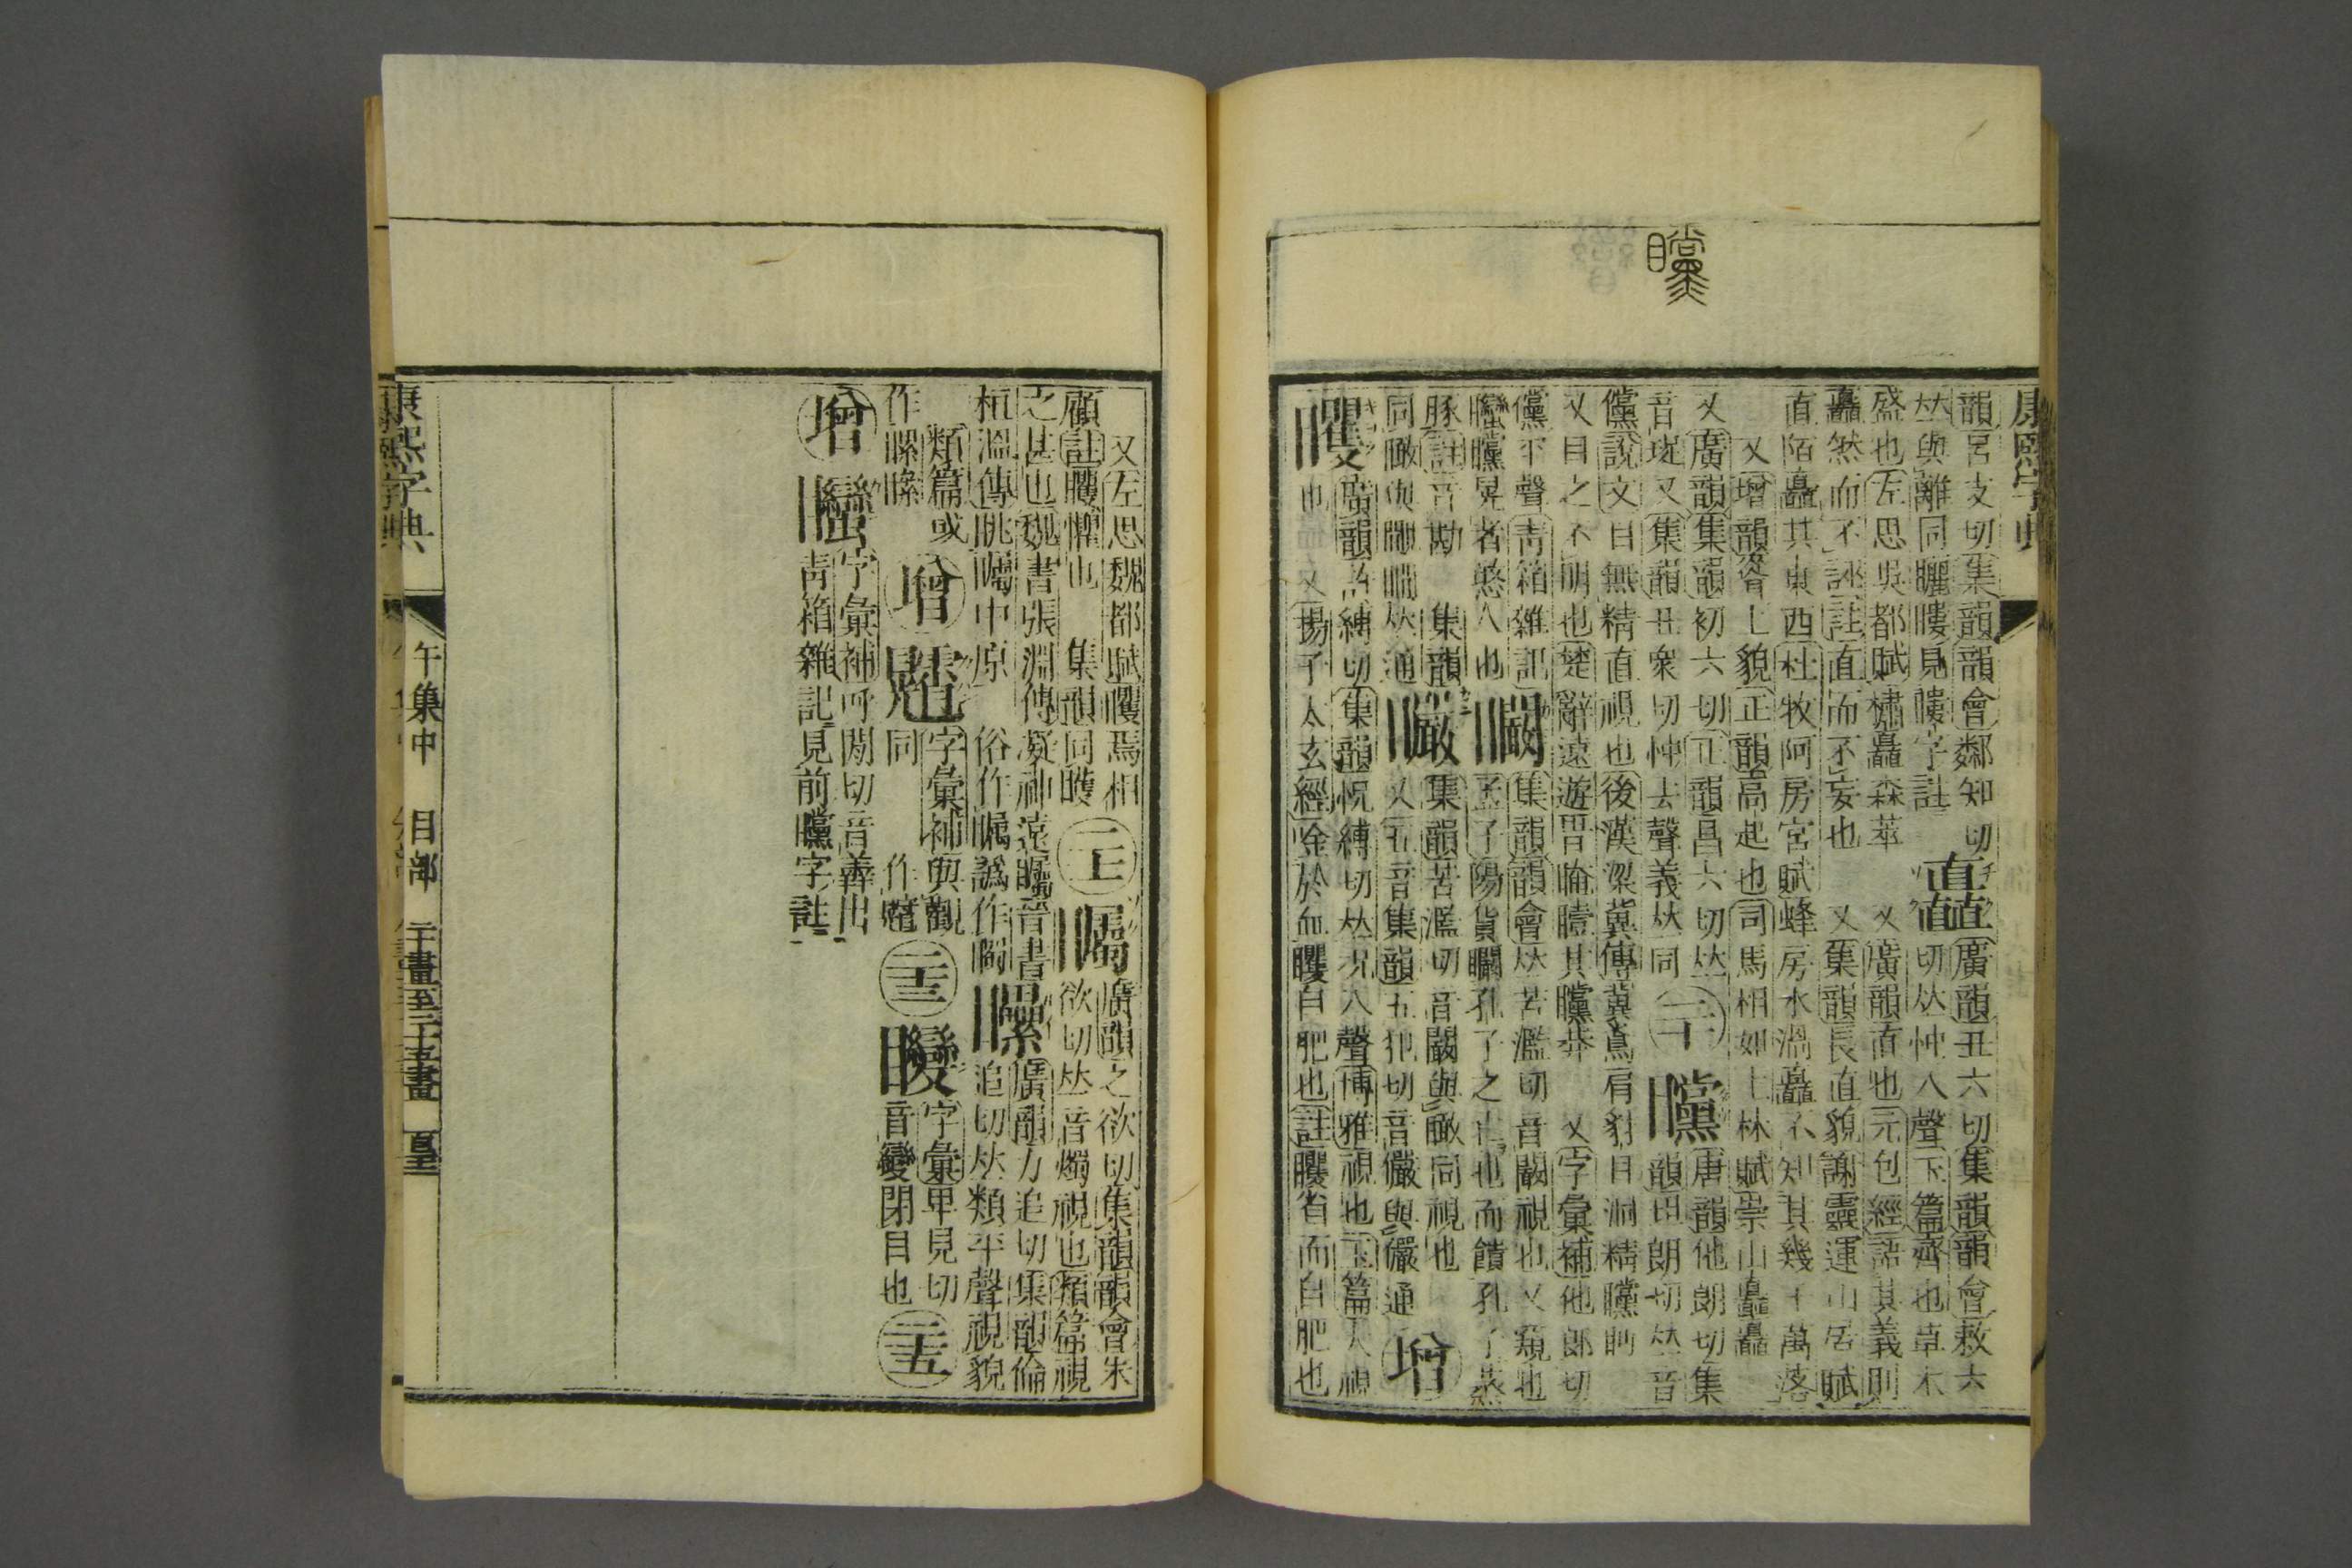 矘
康熙字典
韻呂支切集韻韻會鄰知切
𠀤與離同矖瞜見瞜字註
矗
廣韻丑六切集韻韻會敕六
切𠀤忡入聲玉篇齊也草木
盛也左思吳都賦橚矗森萃
又廣韻直也元包經語其義則
矗然而不誣註直而不妄也
又集韻長直貌謝靈運山居賦
直陌矗其東西杜牧阿房宮賦蜂房水渦矗不知其幾千萬落
又增韻聳上貌正韻高起也司馬相如上林賦崇山矗矗
又廣韻集韻初六切正韻昌六切𠀤
音珿又集韻丑衆切忡去聲義𠀤同
二十
矘
唐韻他朗切集
韻坦朗切𠀤音
儻說文目無精直視也後漢梁冀傳冀鳶肩豺目洞精矘眄
又目之不明也楚辭遠遊時曖曃其矘莽
又字彙補他郎切
儻平聲靑箱雜記
矕矘晃者憨人也
矙
集韻韻會𠀤苦濫切音闞視也又窺也
孟子陽貨矙孔子之亡也而饋孔子蒸
豚註音勘
集韻
同瞰與闞矙𠀤通
矙
集韻苦濫切音闞與瞰同視也
又五音集韻五犯切音儼與儼通
增
矍
廣韻許縛切集韻怳縛切𠀤況入聲博雅視也玉篇大視
也
又揚子太玄經金於血矍自肥也註矍省而自肥也
又左思魏都賦矍焉相
顧註矍懼也
集韻同矆
二十一
矚
廣韻之欲切集韻韻會朱
欲切𠀤音燭視也類篇視
之甚也魏書張淵傳凝神遠矚晉書
桓溫傳眺矚中原
俗作瞩譌作矚
矖
廣韻力追切集韻倫
追切𠀤類平聲視貌
類篇或
作瞯瞭
增
字彙補與觀
同
作
二十三
矕
字彙卑見切
音變閉目也
二十五
增
矕
字彙補呼關切音義出
靑箱雜記見前矘字註
康熙字典
午集中
目部
二十畫至二十五畫